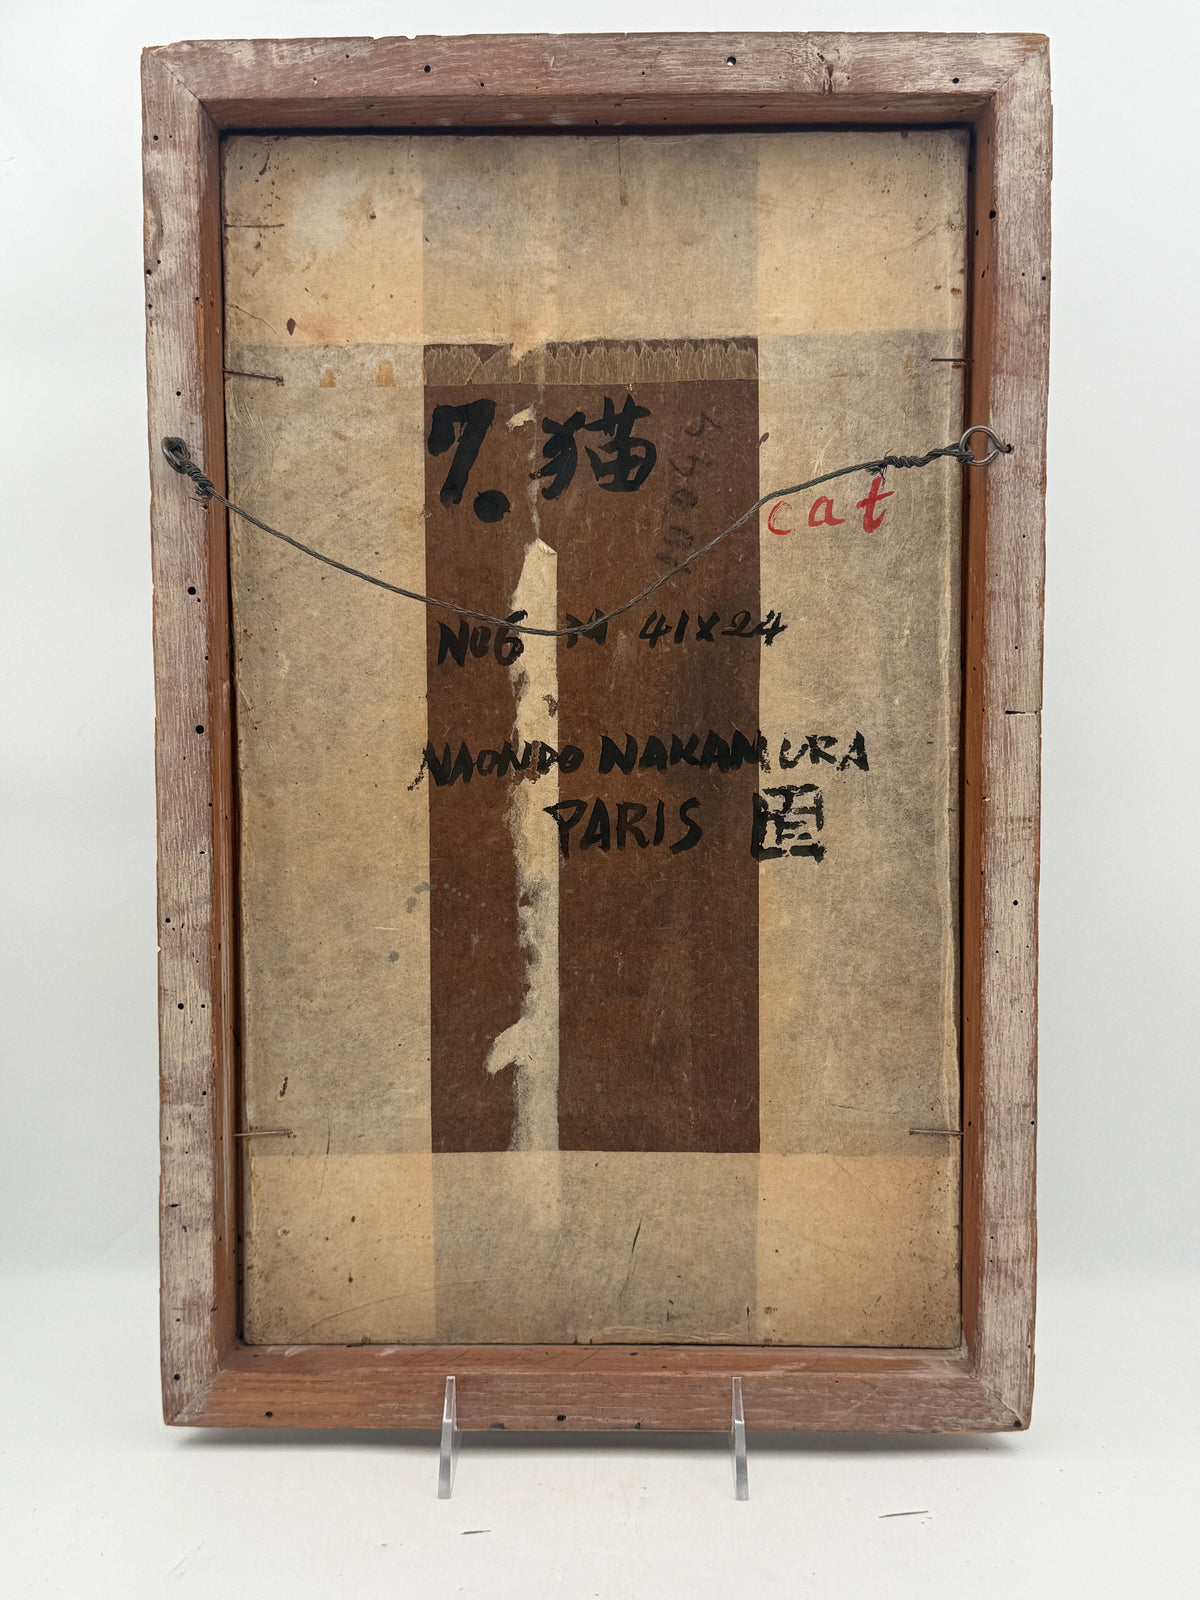 7. 猫
cat
No 6 M 41x24
NAONDO NAKAMURA
PARIS